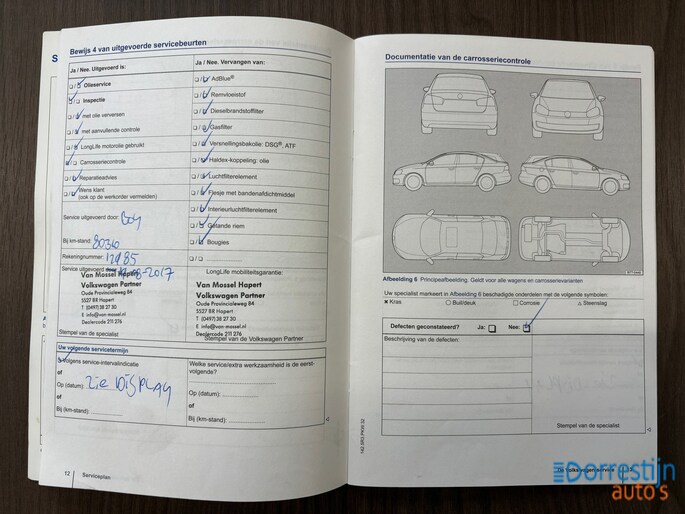 Bewijs 4 van uitgevoerde servicebeurten
Ja / Nee. Uitgevoerd is:
Olieservice
Inspectie
met olie verversen
met aanvullende controle
LongLife motorolie gebruikt
Carrosseriecontrole
Reparatieadvies
Wens klant
(ook op de werkorder vermelden)
Service uitgevoerd door: Boy
Bij km-stand: 8030
Rekeningnummer: 12985
Service uitgevoerd door: 12-08-2017
Van Mossel Hapert
Volkswagen Partner
Oude Provincialeweg 84
5527 BR Hapert
T (0497) 38 27 30
E info@van-mossel.nl
Dealercode 211 276
Stempel van de specialist
Ja / Nee. Vervangen van:
AdBlue®
Remvloeistof
Dieselbrandstoffilter
Gasfilter
Versnellingsbakolie: DSG®, ATF
Haldex-koppeling: olie
Luchtfilterelement
Flesje met bandenafdichtmiddel
Interieurluchtfilterelement
Getande riem
Bougies
LongLife mobiliteitsgarantie:
Van Mossel Hapert
Volkswagen Partner
Oude Provincialeweg 84
5527 BR Hapert
T (0497) 38 27 30
E info@van-mossel.nl
Dealercode 211 276
Stempel van de Volkswagen Partner
Uw volgende servicetermijn
Volgens service-intervalindicatie
of
Op (datum): Zie DISPLAY
of
Bij (km-stand):
Welke service/extra werkzaamheid is de eerst-
volgende?
Op (datum):
of
Bij (km-stand):
12 Serviceplan
Documentatie van de carrosseriecontrole
Afbeelding 6 Principeafbeelding. Geldt voor alle wagens en carrosserievarianten
Uw specialist markeert in Afbeelding 6 beschadigde onderdelen met de volgende symbolen:
× Kras ○ Buil/deuk □ Corrosie △ Steenslag
Defecten geconstateerd? Ja: Nee:
Beschrijving van de defecten:
Stempel van de specialist
Dorrestijn
auto's